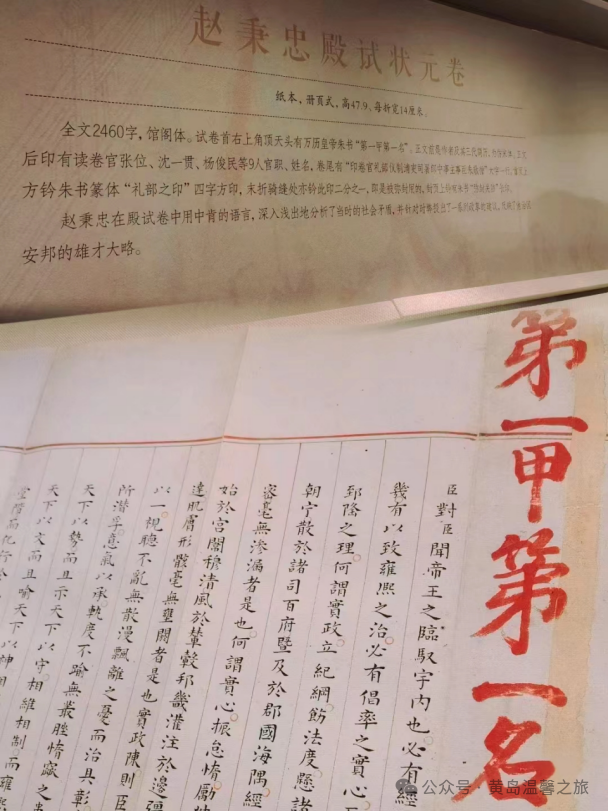 赵秉忠殿试状元卷
纸本，册页式，高47.9、每折宽14厘米。
全文2460字，馆阁体。试卷首右上角顶天头有万历皇帝朱书“第一甲第一名”。正文前是作者及其三代简历，
后印有读卷官张位、沈一贯、杨俊民等9人官职、姓名，卷尾有“印卷官礼部仪制清吏司
方钤朱书篆体“礼部之印”四字方印，末折骑缝处亦钤此印二分之一，
赵秉忠在殿试卷中用中肯的语言，深入浅出地分析了当时的社会矛盾，并针对时弊提出了一系列
安邦的雄才大略。
第一甲第一名
臣對臣聞帝王之臨馭宇內也必有經
幾有以致雍熙之治必有倡率之實心
郅隆之理何謂實政立紀綱飭法度懸諸
朝宁散於諸司百府暨及於郡國海隅經
審毫無滲漏者是也何謂實心振怠惰勵
始於宮闈穆清風於輦轂邦畿灌注於邊疆
達肌膚形骸毫無壅閼者是也實政陳則臣
以一視聽不亂無散漫飄離之憂而治具彰
所潜孚意氣以承軌度不踰無叢脞惰窳之
天下以勢而且示天下以守相維相制而雍熙
天下以文而且喻天下以神相
公众号·黄岛温馨之旅